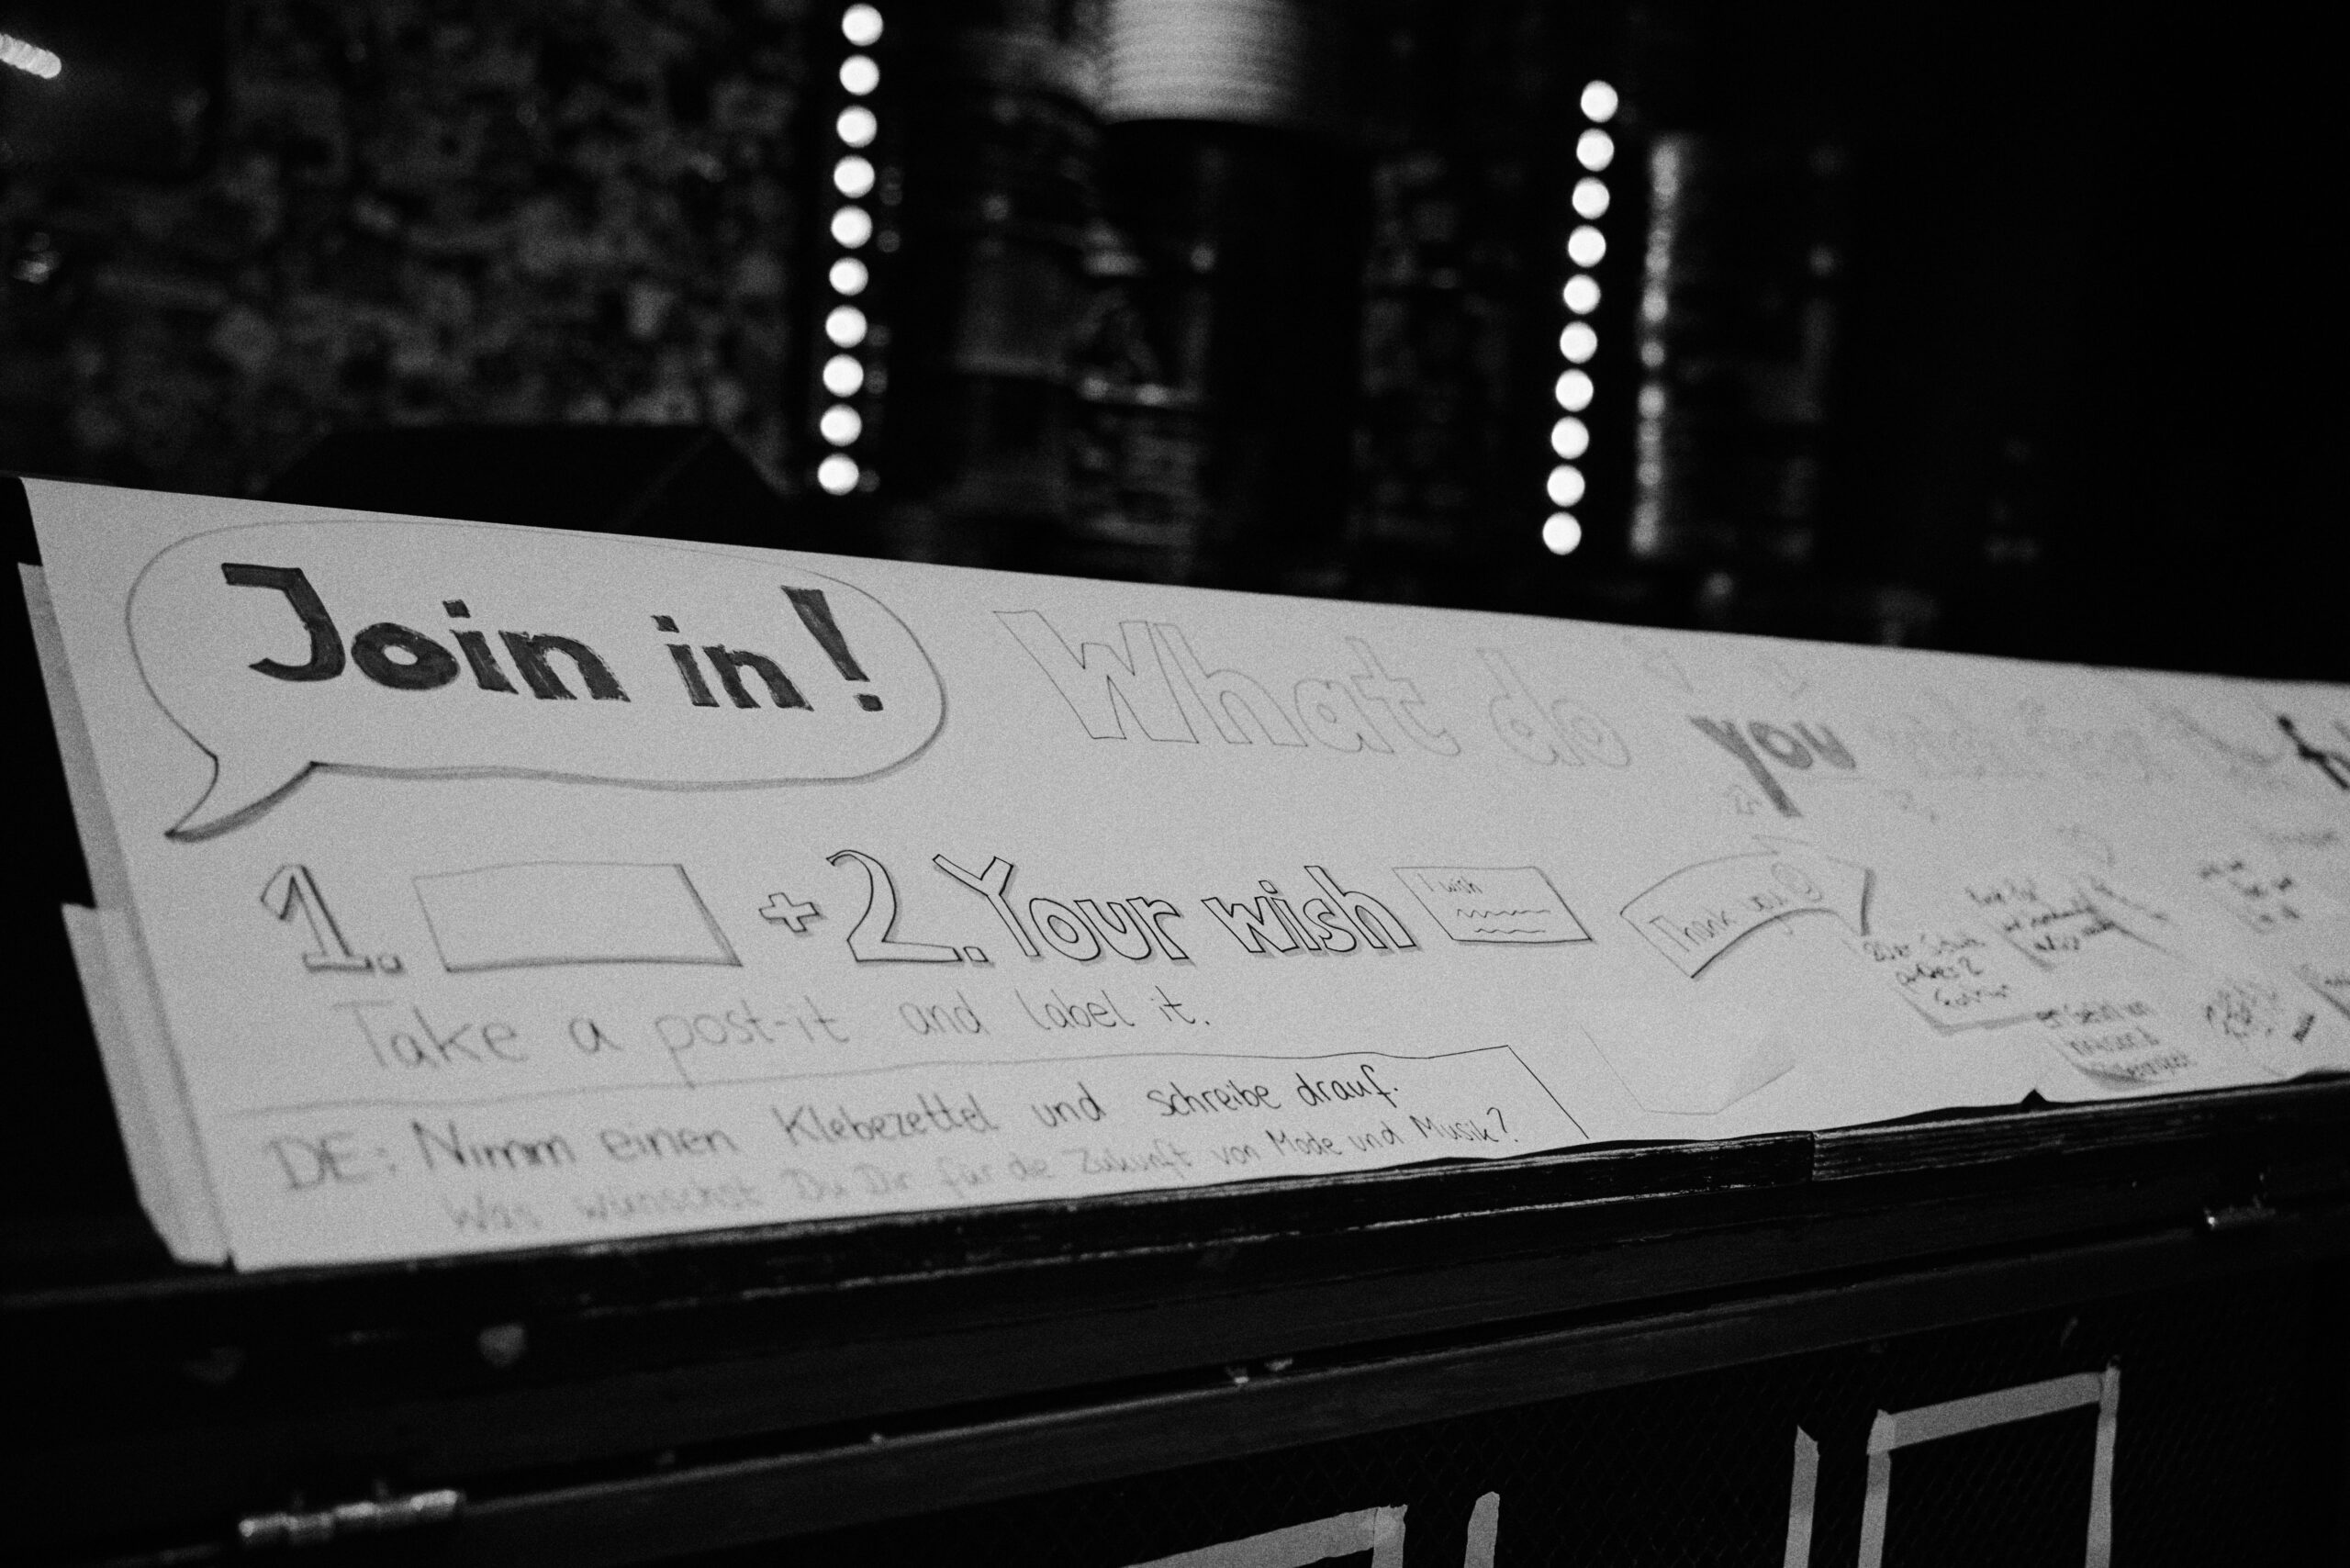 Join in!
What do you
1. + 2. Your wish
I wish
Thank you
Take a post-it and label it.
DE: Nimm einen Klebezettel und schreibe drauf.
Was wünschst Du Dir für die Zukunft von Mode und Musik?